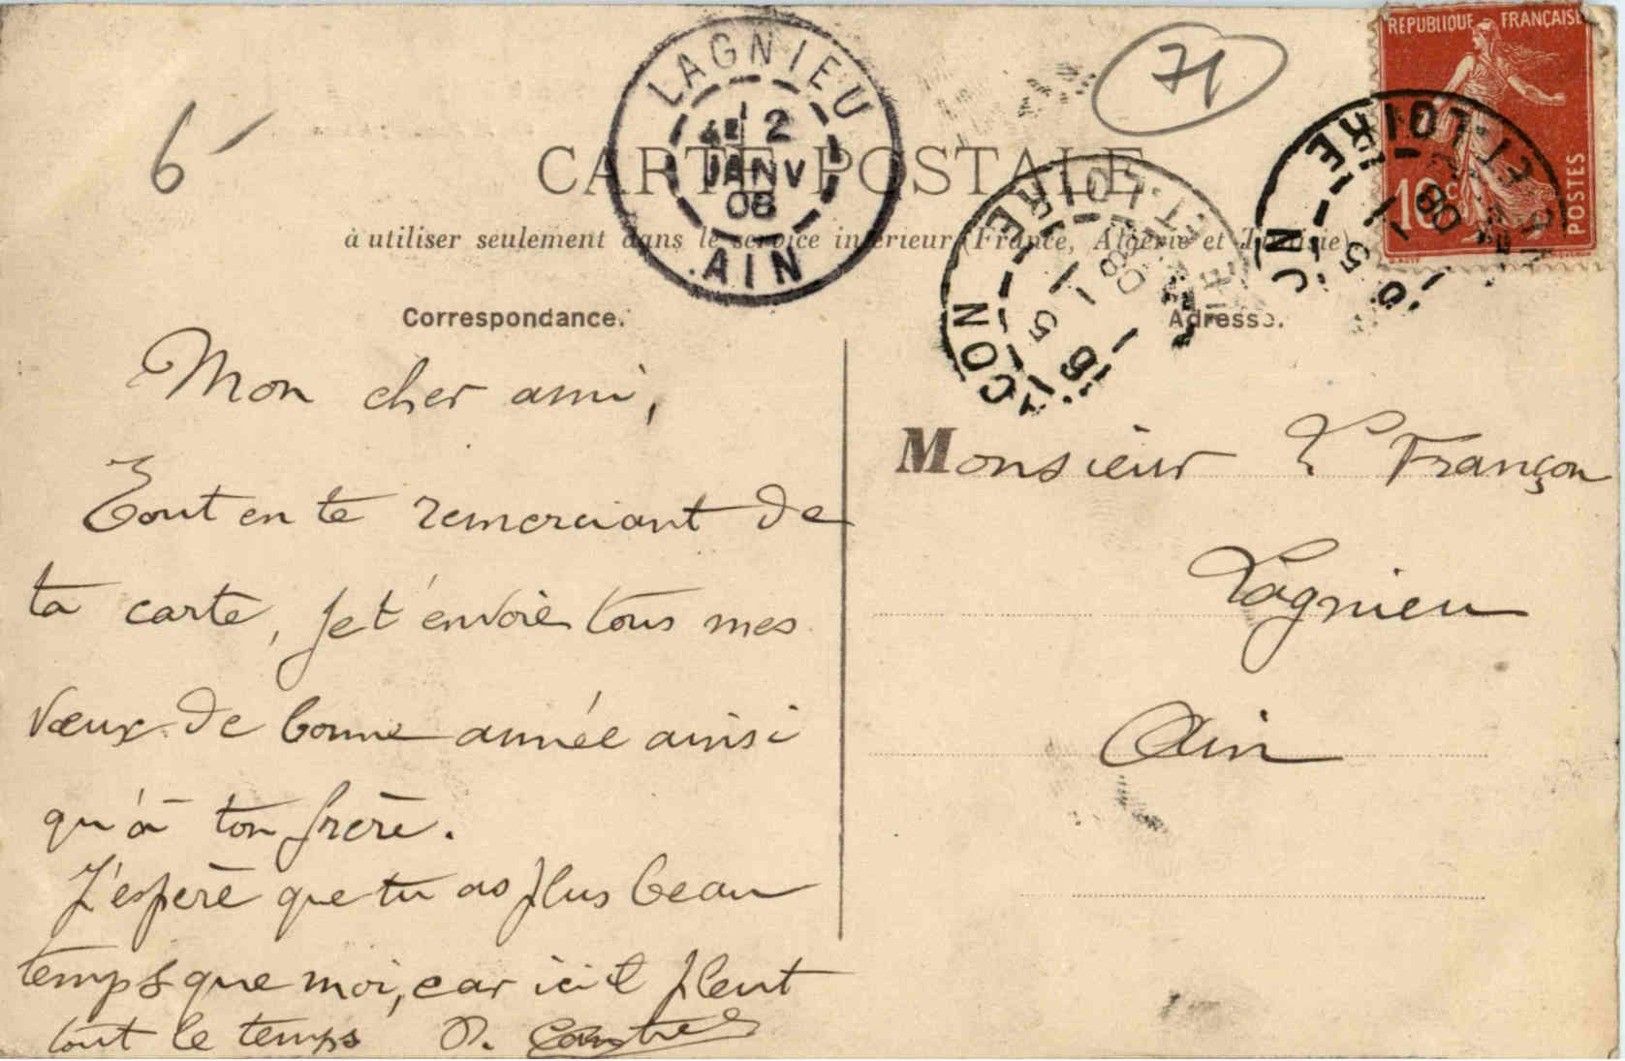 LAGNIEU
4E 2
JANV
08
AIN
71
6-
REPUBLIQUE FRANÇAISE
10c
POSTES
ET LOIRE
ET LOIRE
CON
CARTE POSTALE
à utiliser seulement dans le service intérieur (France, Algérie et Tunisie)
Correspondance.
Adresse.
Mon cher ami,
Tout en te remerciant de
ta carte, je t'envoie tous mes
vœux de bonne année ainsi
qu'à ton frère.
J'espère que tu as plus beau
temps que moi, car ici il pleut
tout le temps
Monsieur Françon
Lagnieu
Ain